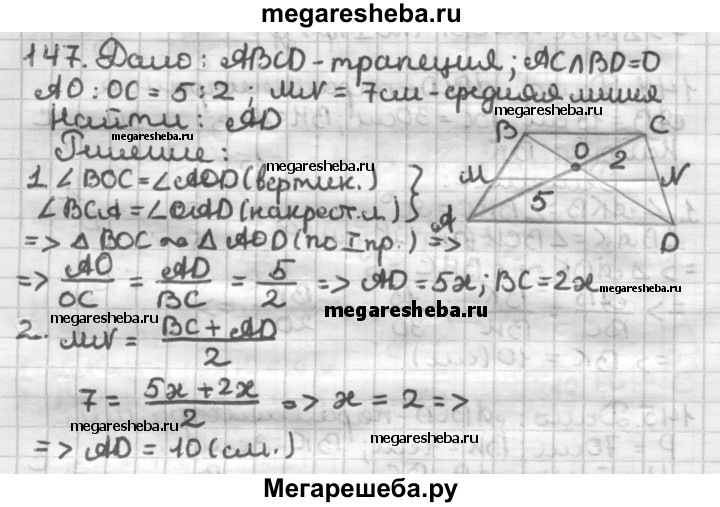 megaresheba.ru
147. Дано: ABCD - трапеция; AC∩BD=O
AO : OC = 5 : 2 ; MN = 7см - средняя линия
megaresheba.ru
Найти: AD
megaresheba.ru
Решение:
megaresheba.ru
B C
O 2
M N
5
A D
1. ∠BOC = ∠AOD (вертик.) }
∠BCA = ∠CAD (накрест.л) }
megaresheba.ru
=> △BOC ∾ △AOD (по I пр.) =>
=> AO/OC = AD/BC = 5/2 => AD = 5x; BC = 2x
megaresheba.ru
megaresheba.ru
megaresheba.ru
megaresheba.ru
2. MN = (BC + AD)/2
7 = (5x + 2x)/2 => x = 2 =>
megaresheba.ru
megaresheba.ru
=> AD = 10 (см.)
Мегарешеба.ру